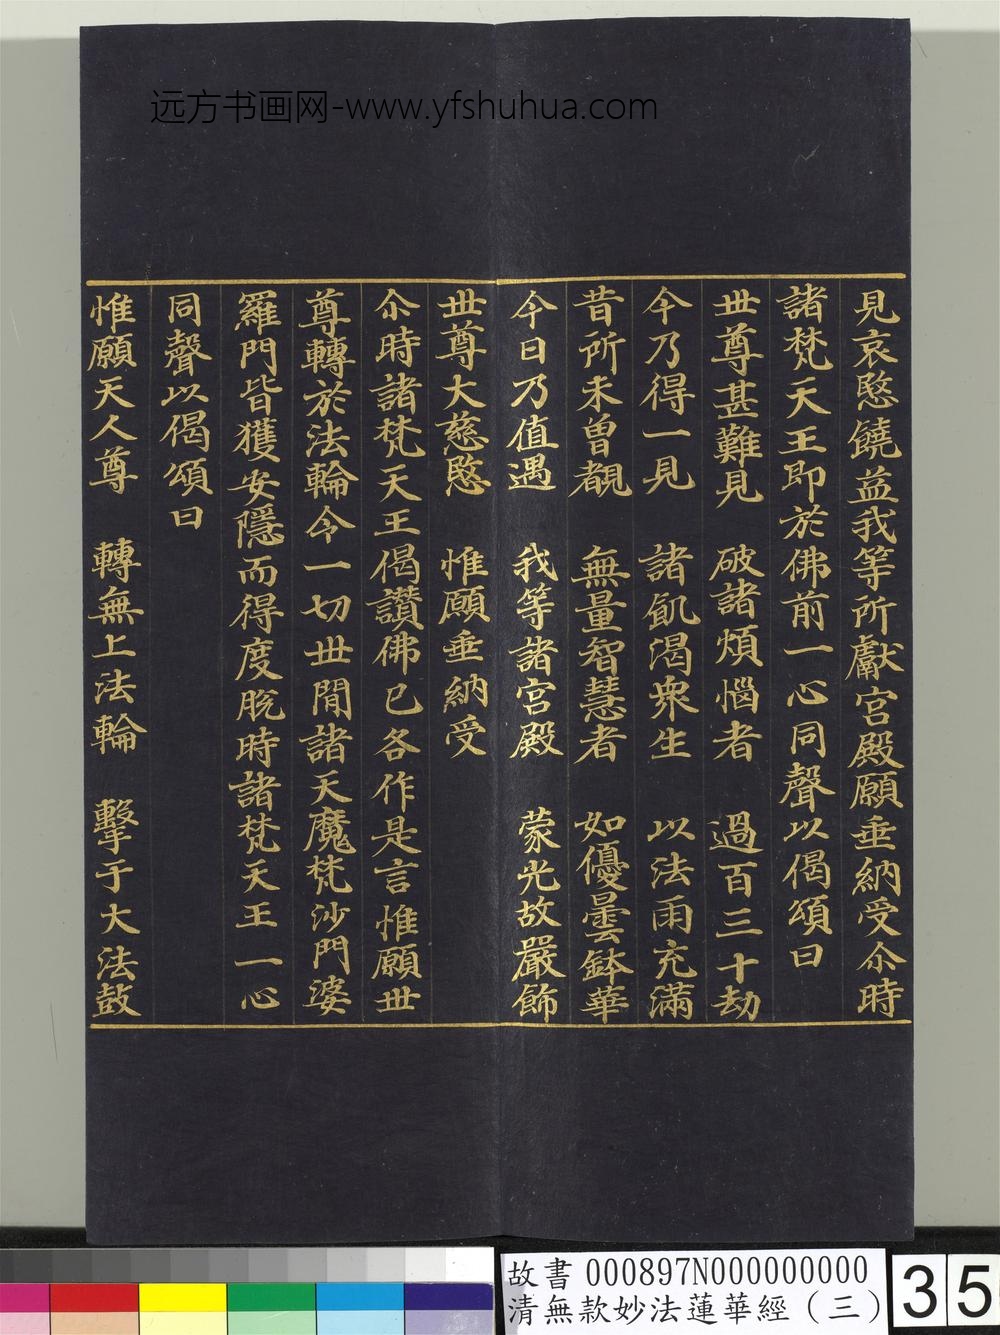 远方书画网-www.yfshuhua.com
見哀愍饒益我等所獻宮殿願垂納受尒時
諸梵天王即於佛前一心同聲以偈頌曰
世尊甚難見　破諸煩惱者　過百三十劫
今乃得一見　諸飢渴衆生　以法雨充滿
昔所未曾覩　無量智慧者　如優曇鉢華
今日乃值遇　我等諸宮殿　蒙光故嚴飾
世尊大慈愍　惟願垂納受
尒時諸梵天王偈讚佛已各作是言惟願世
尊轉於法輪令一切世間諸天魔梵沙門婆
羅門皆獲安隱而得度脫時諸梵天王一心
同聲以偈頌曰
惟願天人尊　轉無上法輪　擊于大法鼓
故書 000897N000000000
清無款妙法蓮華經（三）
35